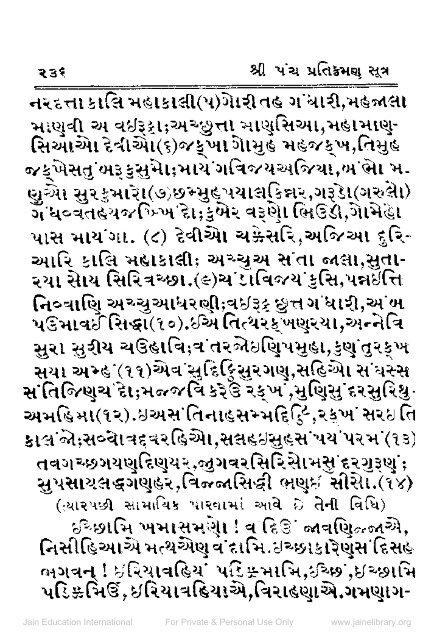 ૨૩૬ શ્રી પંચ પ્રતિક્રમણ સૂત્ર
નરદત્તા કાલિ મહાકાલી(૫)ગોરી તહ ગંધારી,મહજાલા
માણવી અ વઈરૂટ્ટા;અચ્છુત્તા માણુસિઆ,મહામાણ-
સિઆઓ દેવીઓ(૬)જક્ખા ગોમુહ મહજક્ખ,તિમુહ
જક્ખેસતુંબરૂકુસુમો;માયંગવિજયઅજિયા,બંભો મ-
ણુઓ સુરકુમારો(૭)છમ્મુહપયાલકિન્નર,ગરૂડો(ગરુલો)
ગંધવ્વતહયજખ્ખિંદો;કુબેર વરૂણો ભિઉડી,ગોમેહો
પાસ માયંગા. (૮) દેવીઓ ચક્કેસરિ,અજિઆ દુરિ-
આરિ કાલિ મહાકાલી; અચ્ચુઅ સંતા જાલા,સુતા-
રયા સોય સિરિવચ્છા.(૯)ચંડાવિજયંકુસિ,પન્નઈત્તિ
નિવ્વાણિ અચ્ચુઆધરણી;વઈરૂટ્ટછુત્તગંધારી,અંબ
પઉમાવઈ સિદ્ધા(૧૦).ઈઅ તિત્થરક્ખણરયા,અન્નેવિ
સુરા સુરીય ચઉહાવિ;વંતરજોઇણિપમુહા,કુણંતુરક્ખં
સયા અમ્હં(૧૧)એવંસુદિઠ્ઠિસુરગણ,સહિઓ સંઘસ્સ
સંતિજિણચંદો;મજ્જવિ કરેઉ રક્ખં,મુણિસુંદરસૂરિથુ-
અમહિમા(૧૨).ઇઅસંતિનાહસમ્મદિઠ્ઠિ,રક્ખં સરઇ તિ
કાલં જો;સવ્વોવદ્દવરહિઓ,સલહઇસુહસંપયં પરમં(૧૩)
તવગચ્છગયણદિણયર,જુગવરસિરિસોમસુંદરગુરૂણં;
સુપસાયલદ્ધગણહર,વિજ્જાસિદ્ધી ભણઈ સીસો.(૧૪)
(ત્યારપછી સામાયિક પારવામાં આવે છે તેની વિધિ)
ઈચ્છામિ ખમાસમણો ! વંદિઉં જાવણિજ્જાએ,
નિસીહિઆએ મત્થએણ વંદામિ. ઇચ્છાકારેણ સંદિસહ
ભગવન્ ! ઇરિયાવહિયં પડિક્કમામિ, ઇચ્છં, ઇચ્છામિ
પડિક્કમિઉં, ઇરિયાવહિયાએ, વિરાહણાએ-ગમણાગ-
Jain Education International For Private & Personal Use Only www.jainelibrary.org